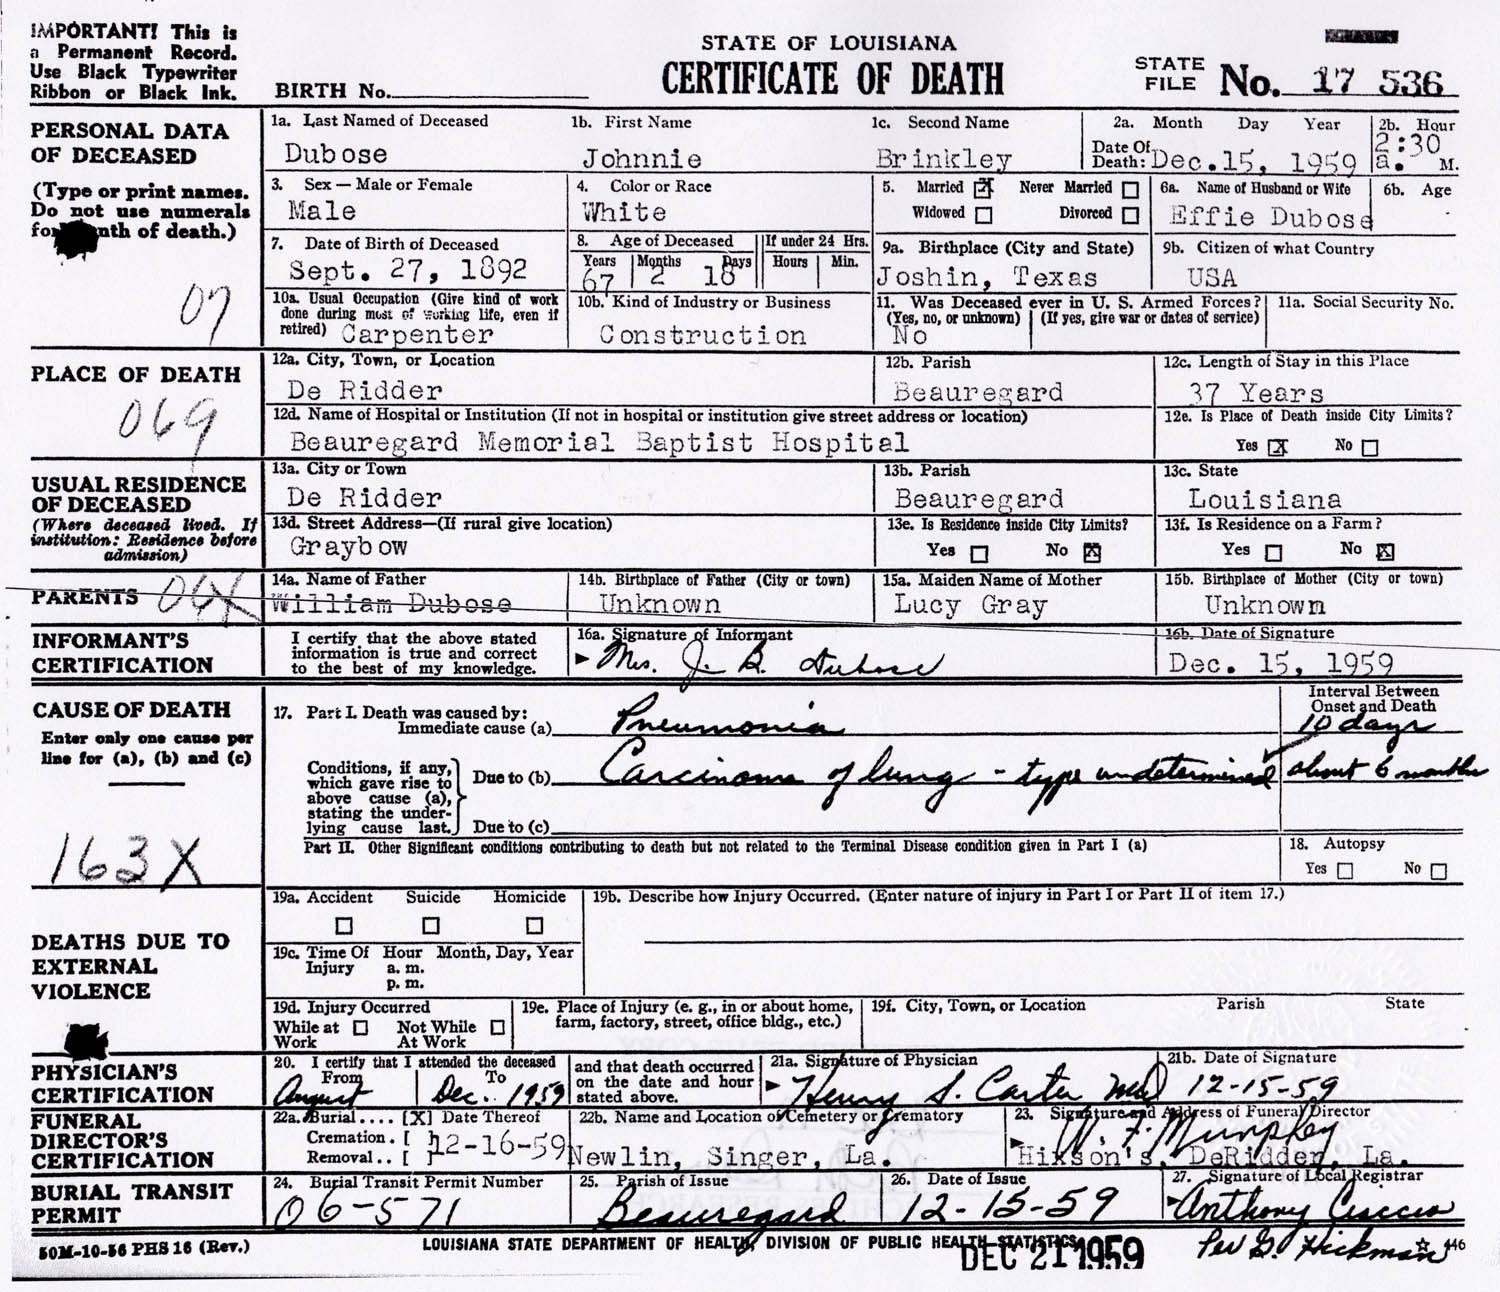 IMPORTANT! This is
a Permanent Record.
Use Black Typewriter
Ribbon or Black Ink.
BIRTH No.
STATE OF LOUISIANA
CERTIFICATE OF DEATH
STATE FILE No. 17 536
PERSONAL DATA
OF DECEASED
(Type or print names.
Do not use numerals
for month of death.)
07
1a. Last Named of Deceased 1b. First Name 1c. Second Name 2a. Month Day Year 2b. Hour
Dubose Johnnie Brinkley Date Of Death: Dec.15, 1959 2:30 a. M.
3. Sex — Male or Female 4. Color or Race 5. Married [X] Never Married 6a. Name of Husband or Wife 6b. Age
Male White Widowed Divorced Effie Dubose
7. Date of Birth of Deceased 8. Age of Deceased If under 24 Hrs. 9a. Birthplace (City and State) 9b. Citizen of what Country
Years Months Days Hours Min.
Sept. 27, 1892 67 2 18 Joshin, Texas USA
10a. Usual Occupation (Give kind of work done during most of working life, even if retired) Carpenter
10b. Kind of Industry or Business
Construction
11. Was Deceased ever in U. S. Armed Forces?
(Yes, no, or unknown) (If yes, give war or dates of service)
No
11a. Social Security No.
PLACE OF DEATH
069
12a. City, Town, or Location 12b. Parish 12c. Length of Stay in this Place
De Ridder Beauregard 37 Years
12d. Name of Hospital or Institution (If not in hospital or institution give street address or location) 12e. Is Place of Death inside City Limits?
Beauregard Memorial Baptist Hospital Yes X No
USUAL RESIDENCE
OF DECEASED
(Where deceased lived. If
institution: Residence before
admission)
13a. City or Town 13b. Parish 13c. State
De Ridder Beauregard Louisiana
13d. Street Address—(If rural give location) 13e. Is Residence inside City Limits? 13f. Is Residence on a Farm?
Graybow Yes No X Yes No X
PARENTS
14a. Name of Father 14b. Birthplace of Father (City or town) 15a. Maiden Name of Mother 15b. Birthplace of Mother (City or town)
William Dubose Unknown Lucy Gray Unknown
INFORMANT'S
CERTIFICATION
I certify that the above stated
information is true and correct
to the best of my knowledge.
16a. Signature of Informant 16b. Date of Signature
Mrs. J. B. Dubose Dec. 15, 1959
CAUSE OF DEATH
Enter only one cause per
line for (a), (b) and (c)
163X
17. Part I. Death was caused by: Interval Between Onset and Death
Immediate cause (a) Pneumonia 10 days
Conditions, if any,
which gave rise to
above cause (a),
stating the under-
lying cause last.
Due to (b) Carcinoma of lung - type undetermined about 6 months
Due to (c)
Part II. Other Significant conditions contributing to death but not related to the Terminal Disease condition given in Part I (a)
18. Autopsy
Yes No
DEATHS DUE TO
EXTERNAL
VIOLENCE
19a. Accident Suicide Homicide 19b. Describe how Injury Occurred. (Enter nature of injury in Part I or Part II of item 17.)
19c. Time Of Injury Hour Month, Day, Year
a. m.
p. m.
19d. Injury Occurred
While at Work Not While At Work
19e. Place of Injury (e. g., in or about home,
farm, factory, street, office bldg., etc.)
19f. City, Town, or Location Parish State
PHYSICIAN'S
CERTIFICATION
20. I certify that I attended the deceased
From To
August Dec. 1959
and that death occurred
on the date and hour
stated above.
21a. Signature of Physician 21b. Date of Signature
Henry S. Carter MD 12-15-59
FUNERAL
DIRECTOR'S
CERTIFICATION
22a. Burial.... [X] Date Thereof
Cremation. [ ]
Removal.. [ ] 12-16-59
22b. Name and Location of Cemetery or Crematory
Newlin, Singer, La.
23. Signature and Address of Funeral Director
Hixson's, DeRidder, La.
BURIAL TRANSIT
PERMIT
24. Burial Transit Permit Number 25. Parish of Issue 26. Date of Issue 27. Signature of Local Registrar
06-571 Beauregard 12-15-59 Anthony Ciaccio
Per G. Hickman
50M-10-56 PHS 16 (Rev.)
LOUISIANA STATE DEPARTMENT OF HEALTH, DIVISION OF PUBLIC HEALTH STATISTICS
DEC 21 1959
446